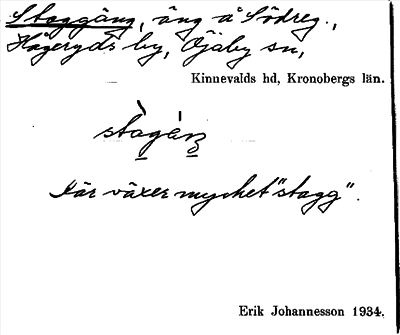 Staggäng, äng å Södreg.,
Hågeryds by, Öjaby sn,
Kinnevalds hd, Kronobergs län.
stagäŋ
Där växer mycket "stagg".
Erik Johannesson 1934.